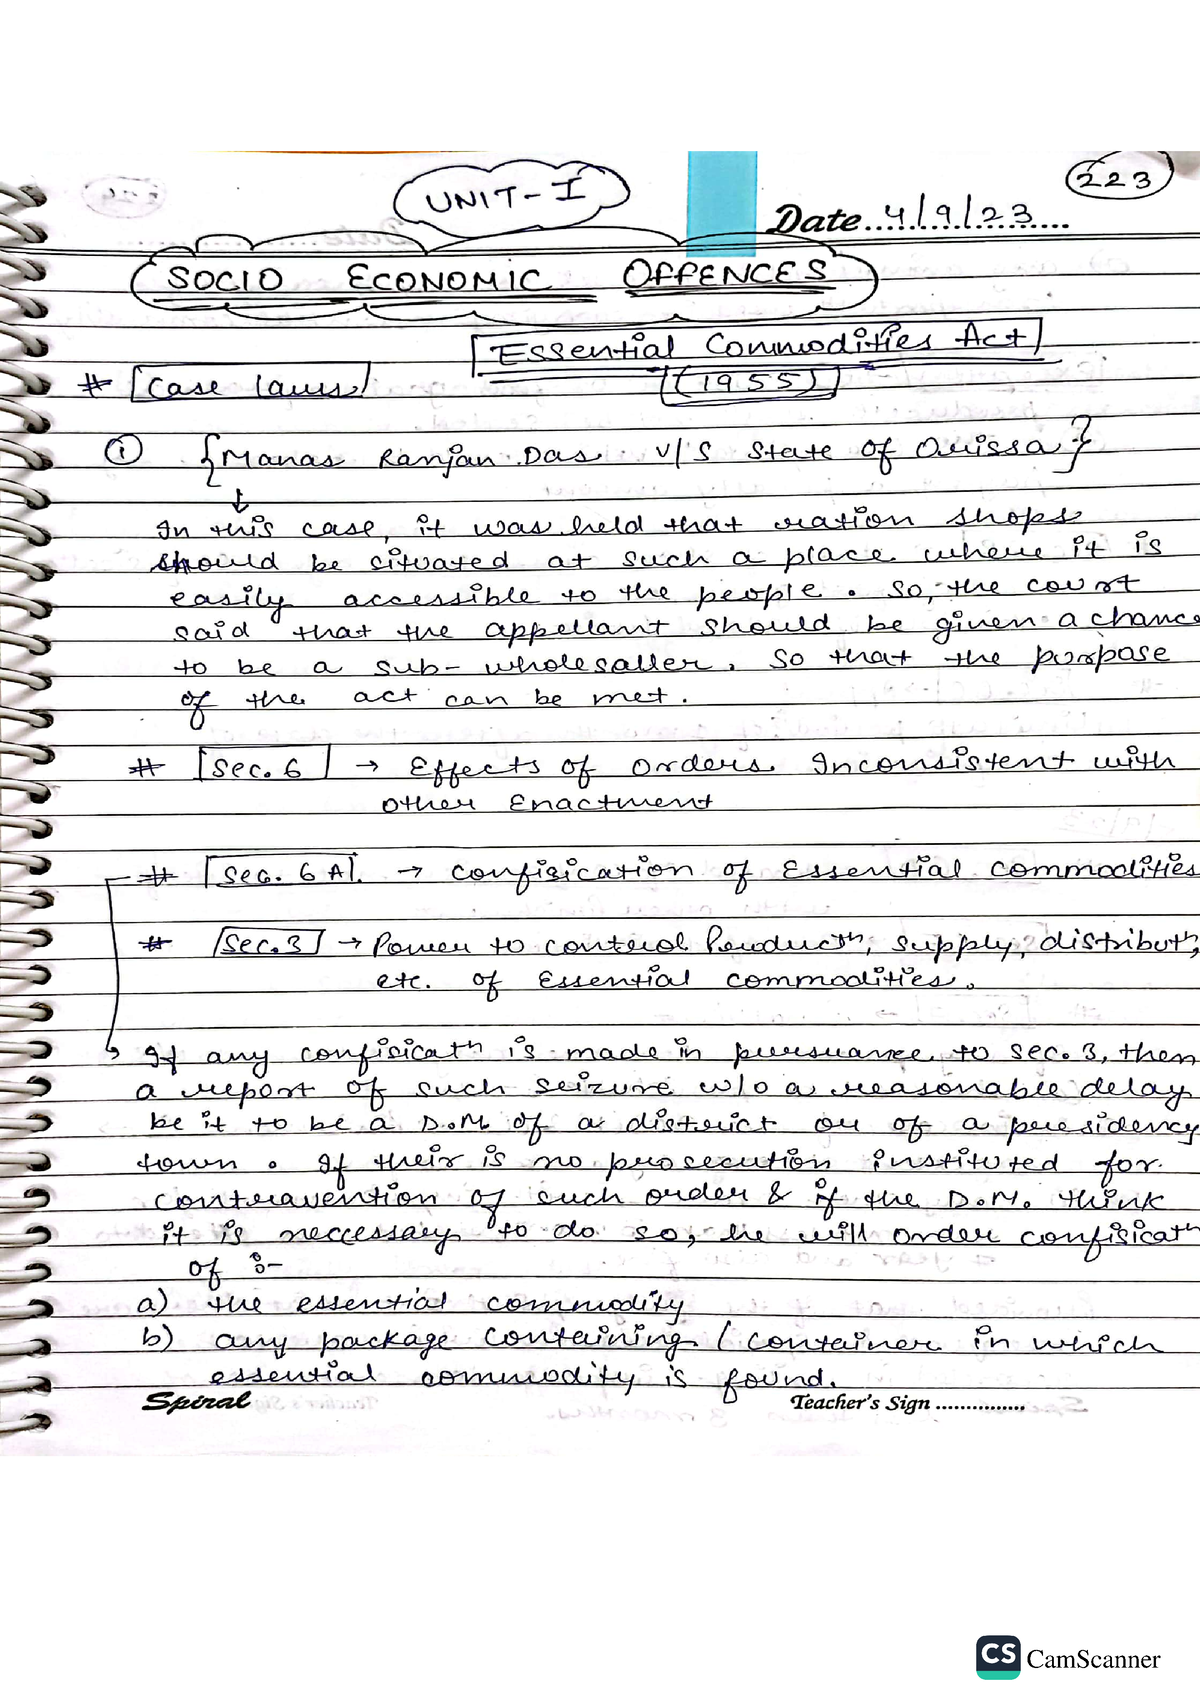 UNIT-I
223
Date 4/9/23
SOCIO ECONOMIC OFFENCES
Essential Commodities Act
(1955)
# Case laws
① {Manas Ranjan Das v/s State of Orissa}
↓
In this case, it was held that ration shops
should be situated at such a place where it is
easily accessible to the people. So, the court
said that the appellant should be given a chance
to be a sub-wholesaller. So that the purpose
of the act can be met.
# Sec. 6 → Effects of orders Inconsistent with
other Enactment
# Sec. 6A → Confisication of Essential commodities
# Sec. 3 → Power to control Productn, supply, distributn,
etc. of Essential commodities.
If any confisicatn is made in pursuance to sec. 3, then
a report of such seizure w/o a reasonable delay
be it to be a D.M. of a district or of a presidency
town. If their is no prosecution instituted for
contravention of such order & if the D.M. think
it is neccessary to do so, he will order confisicatn
of :-
a) the essential commodity
b) any package containing / container in which
essential commodity is found.
Spiral
Teacher's Sign ...............
CS CamScanner